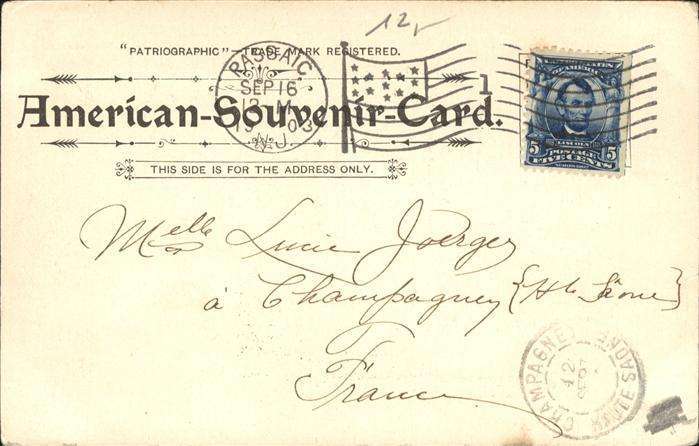 12,
"PATRIOGRAPHIC"—TRADE MARK REGISTERED.
PASSAIC
SEP 16
12-M
1903
N.J.
1
American-Souvenir-Card.
THIS SIDE IS FOR THE ADDRESS ONLY.
UNITED STATES
OF AMERICA
LINCOLN
5 POSTAGE 5
FIVE CENTS
Melle Lucie Joerger
à Champagney {Hte Saône}
France
CHAMPAGNEY
HAUTE SAONE